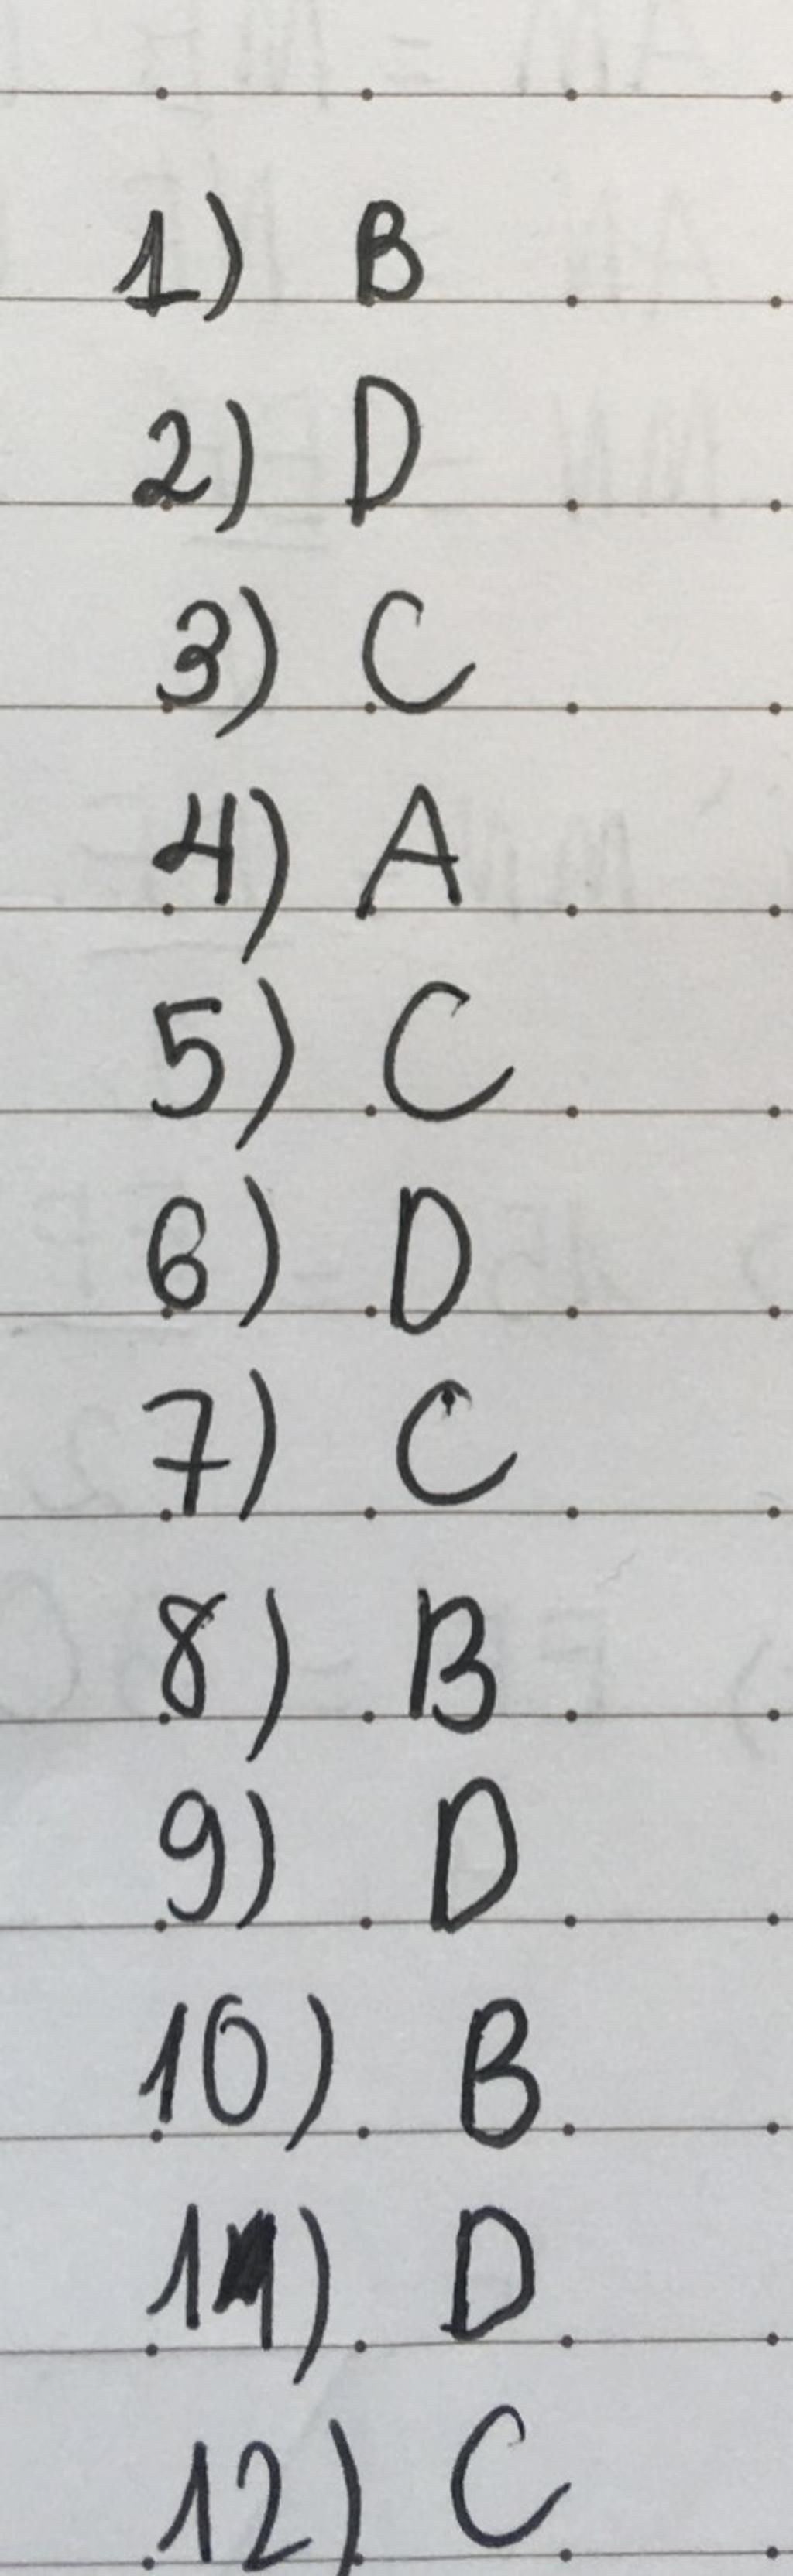 1) B
2) D
3) C
4) A
5) C
6) D
7) C
8) B
9) D
10) B
11) D
12) C